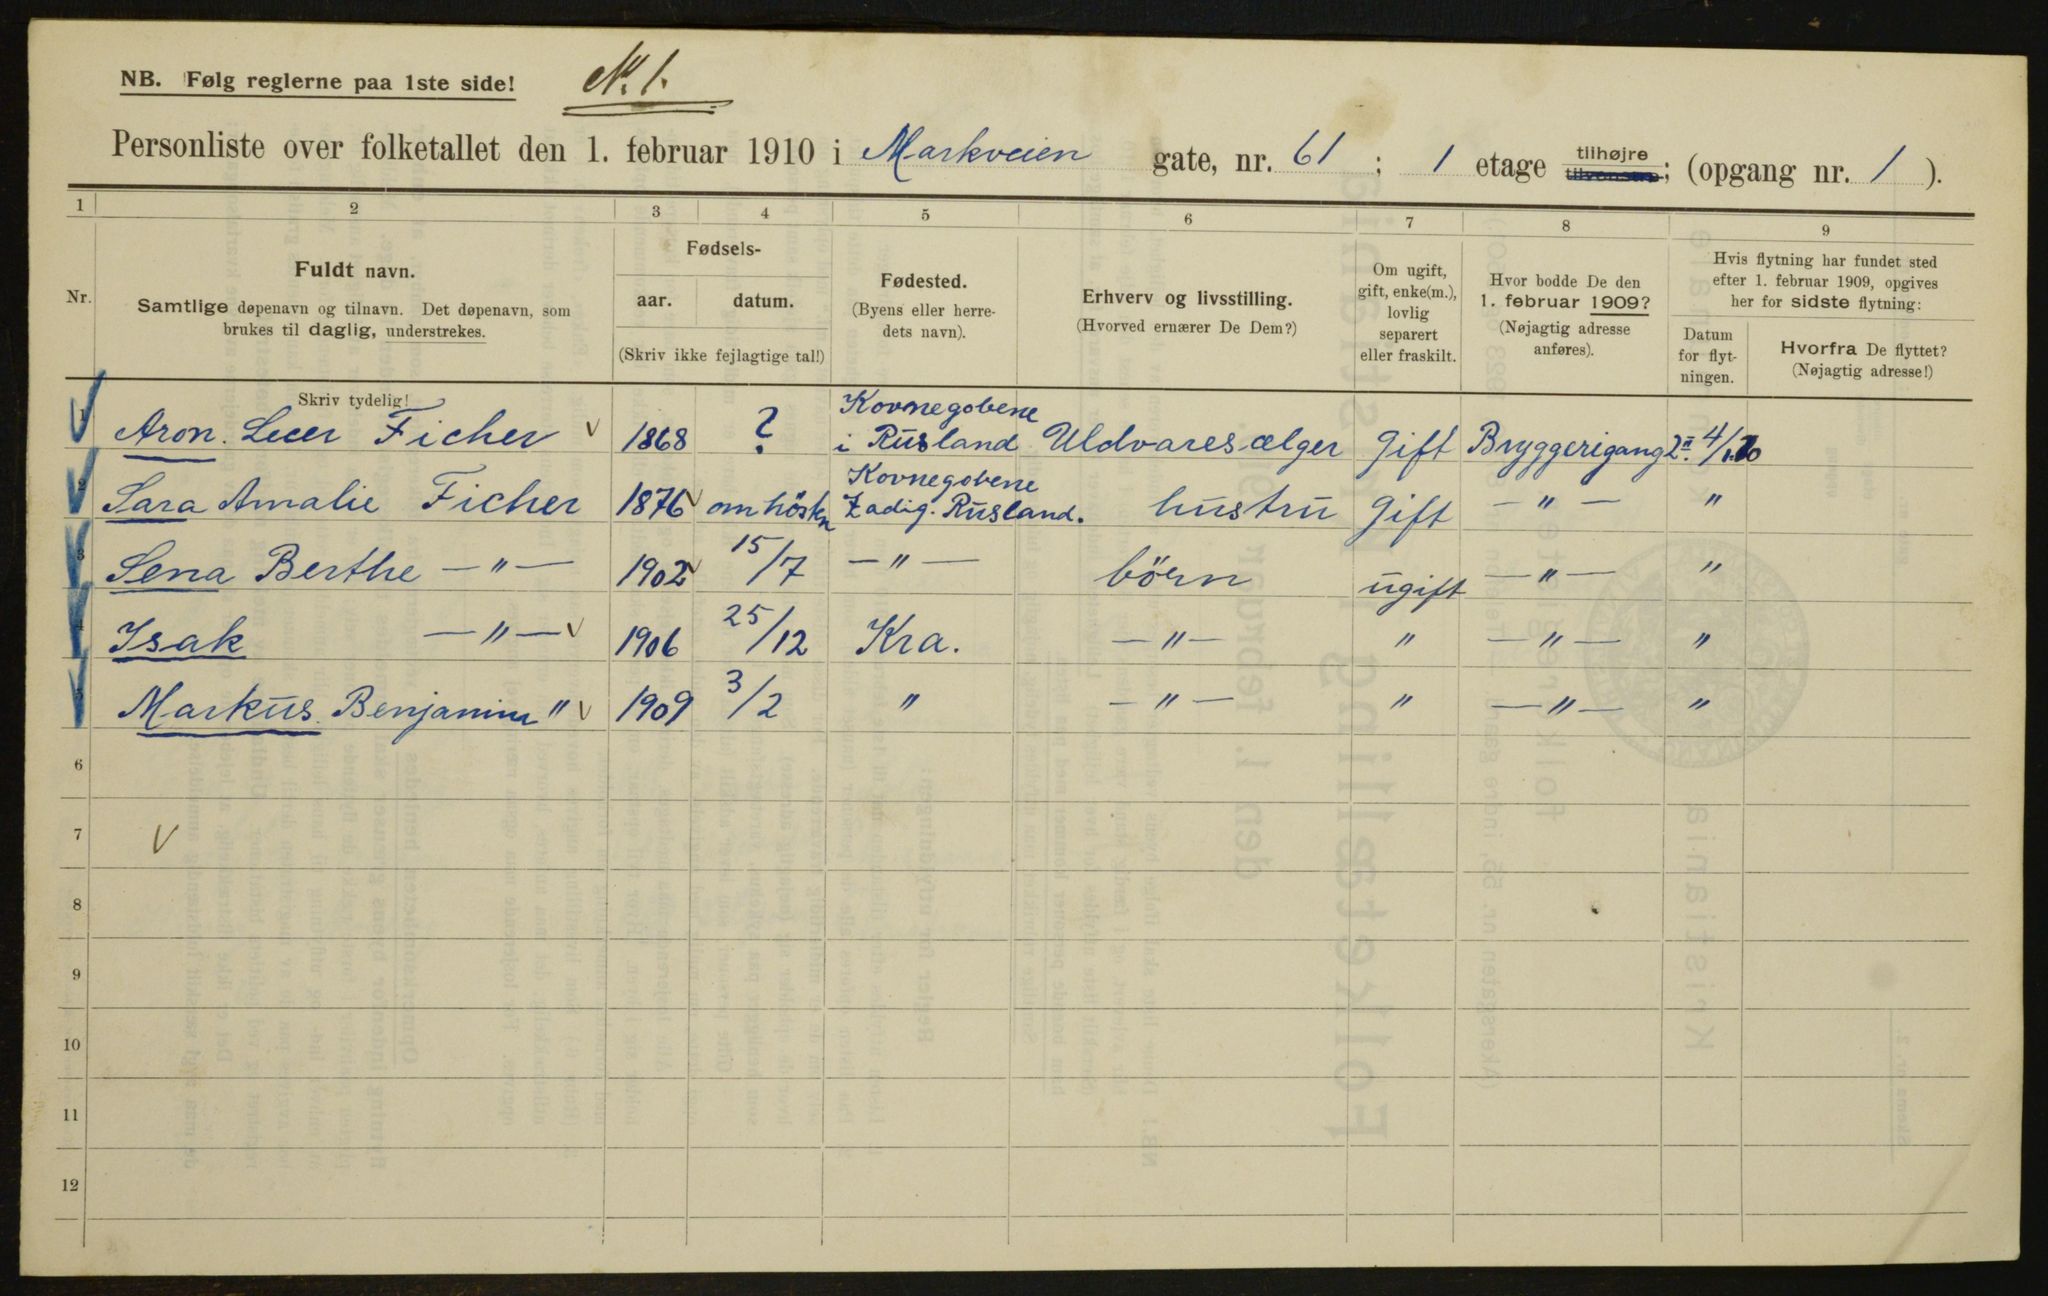 No. 1.
NB. Følg reglerne paa 1ste side!
Personliste over folketallet den 1. februar 1910 i Markveien gate, nr. 61 ; 1 etage tilhøjre tilvenstre; (opgang nr. 1 ).
1 2 3 4 5 6 7 8 9
Nr.
Fuldt navn.
Samtlige døpenavn og tilnavn. Det døpenavn, som
brukes til daglig, understrekes.
Fødsels-
aar. datum.
(Skriv ikke fejlagtige tal!)
Fødested.
(Byens eller herre-
dets navn).
Erhverv og livsstilling.
(Hvorved ernærer De Dem?)
Om ugift,
gift, enke(m.),
lovlig
separert
eller fraskilt.
Hvor bodde De den
1. februar 1909?
(Nøjagtig adresse
anføres).
Hvis flytning har fundet sted
efter 1. februar 1909, opgives
her for sidste flytning:
Datum
for flyt-
ningen.
Hvorfra De flyttet?
(Nøjagtig adresse!)
Skriv tydelig!
1 Aron. Leeer Ficher 1868 ? Kovnegobene i Rusland Uldvaresælger gift Bryggerigang 2 4/1.10
2 Sara Amalie Ficher 1876 om hösten Kovnegobene Zadig. Rusland. hustru gift — " — "
3 Sena Berthe — " — 1902 15/7 — " — börn ugift — " — "
4 Isak — " — 1906 25/12 Kra. — " — " — " — "
5 Markus. Benjamin " 1909 3/2 " — " — " — " — "
6
7
8
9
10
11
12